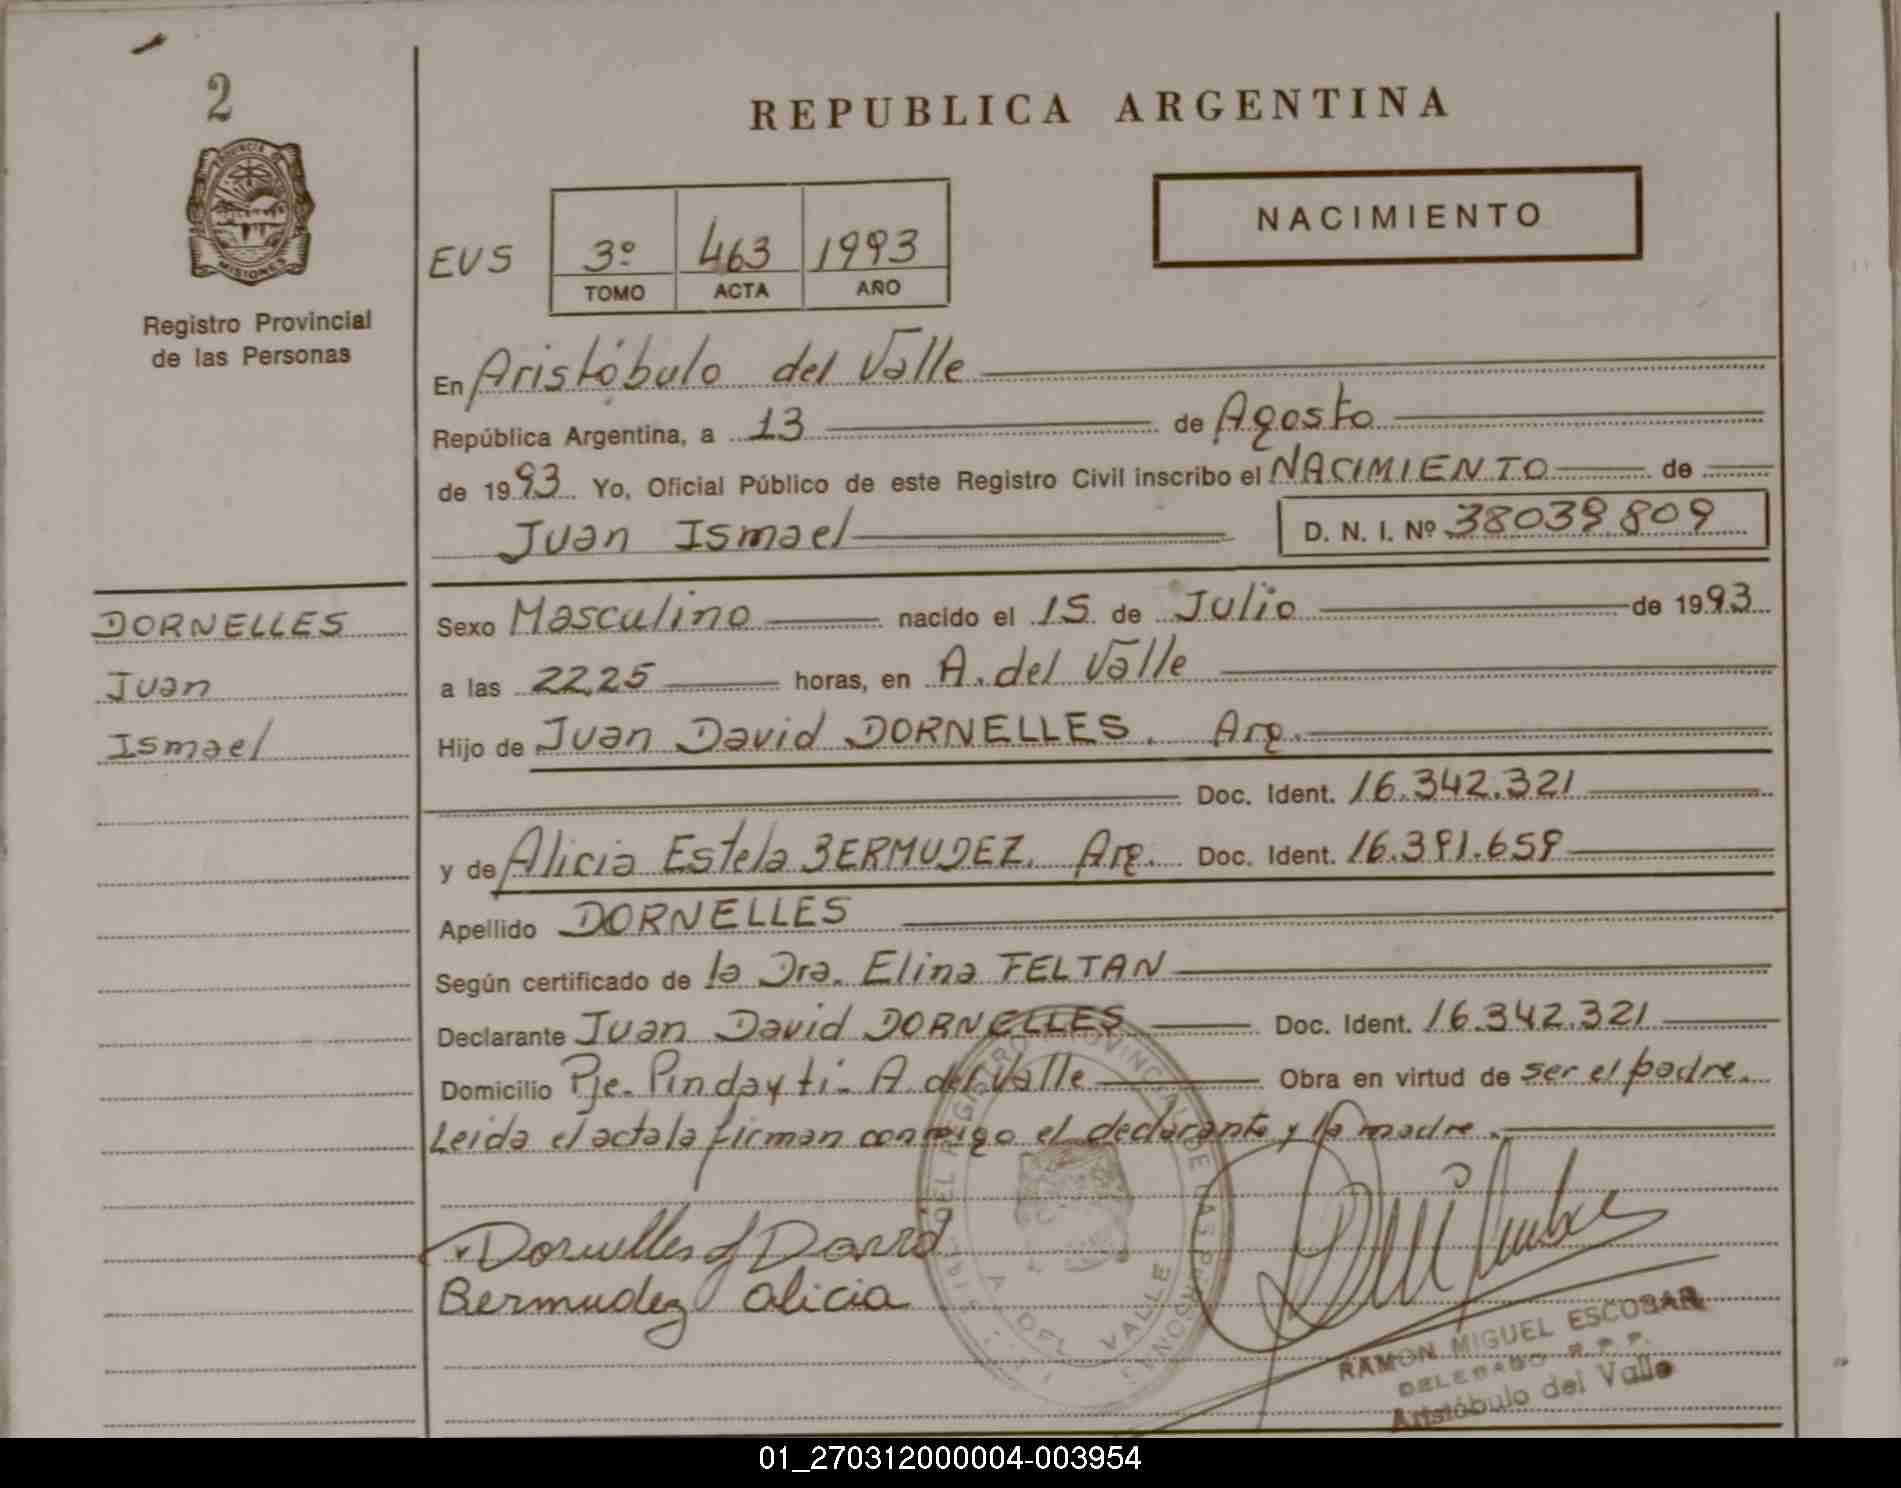 2
PROVINCIA DE
MISIONES
Registro Provincial
de las Personas
REPUBLICA ARGENTINA
NACIMIENTO
EUS 3º 463 1993
TOMO ACTA AÑO
En Aristóbulo del Valle
República Argentina, a 13 de Agosto
de 1993 Yo, Oficial Público de este Registro Civil inscribo el NACIMIENTO de
Juan Ismael D. N. I. Nº 38039809
DORNELLES
Juan
Ismael
Sexo Masculino nacido el 15 de Julio de 1993
a las 22,25 horas, en A. del Valle
Hijo de Juan David DORNELLES. Arg.
Doc. Ident. 16.342.321
y de Alicia Estela BERMUDEZ. Arg. Doc. Ident. 16.391.659
Apellido DORNELLES
Según certificado de la Dra. Elina FELTAN
Declarante Juan David DORNELLES Doc. Ident. 16.342.321
Domicilio Pje. Pindayti - A. del Valle Obra en virtud de ser el padre.
Leida el acta la firman conmigo el declarante y la madre.
Dornelles J David
Bermudez alicia
A. DEL VALLE
RAMON MIGUEL ESCOBAR
DELEGADO R.P.P.
Aristóbulo del Valle
01_270312000004-003954